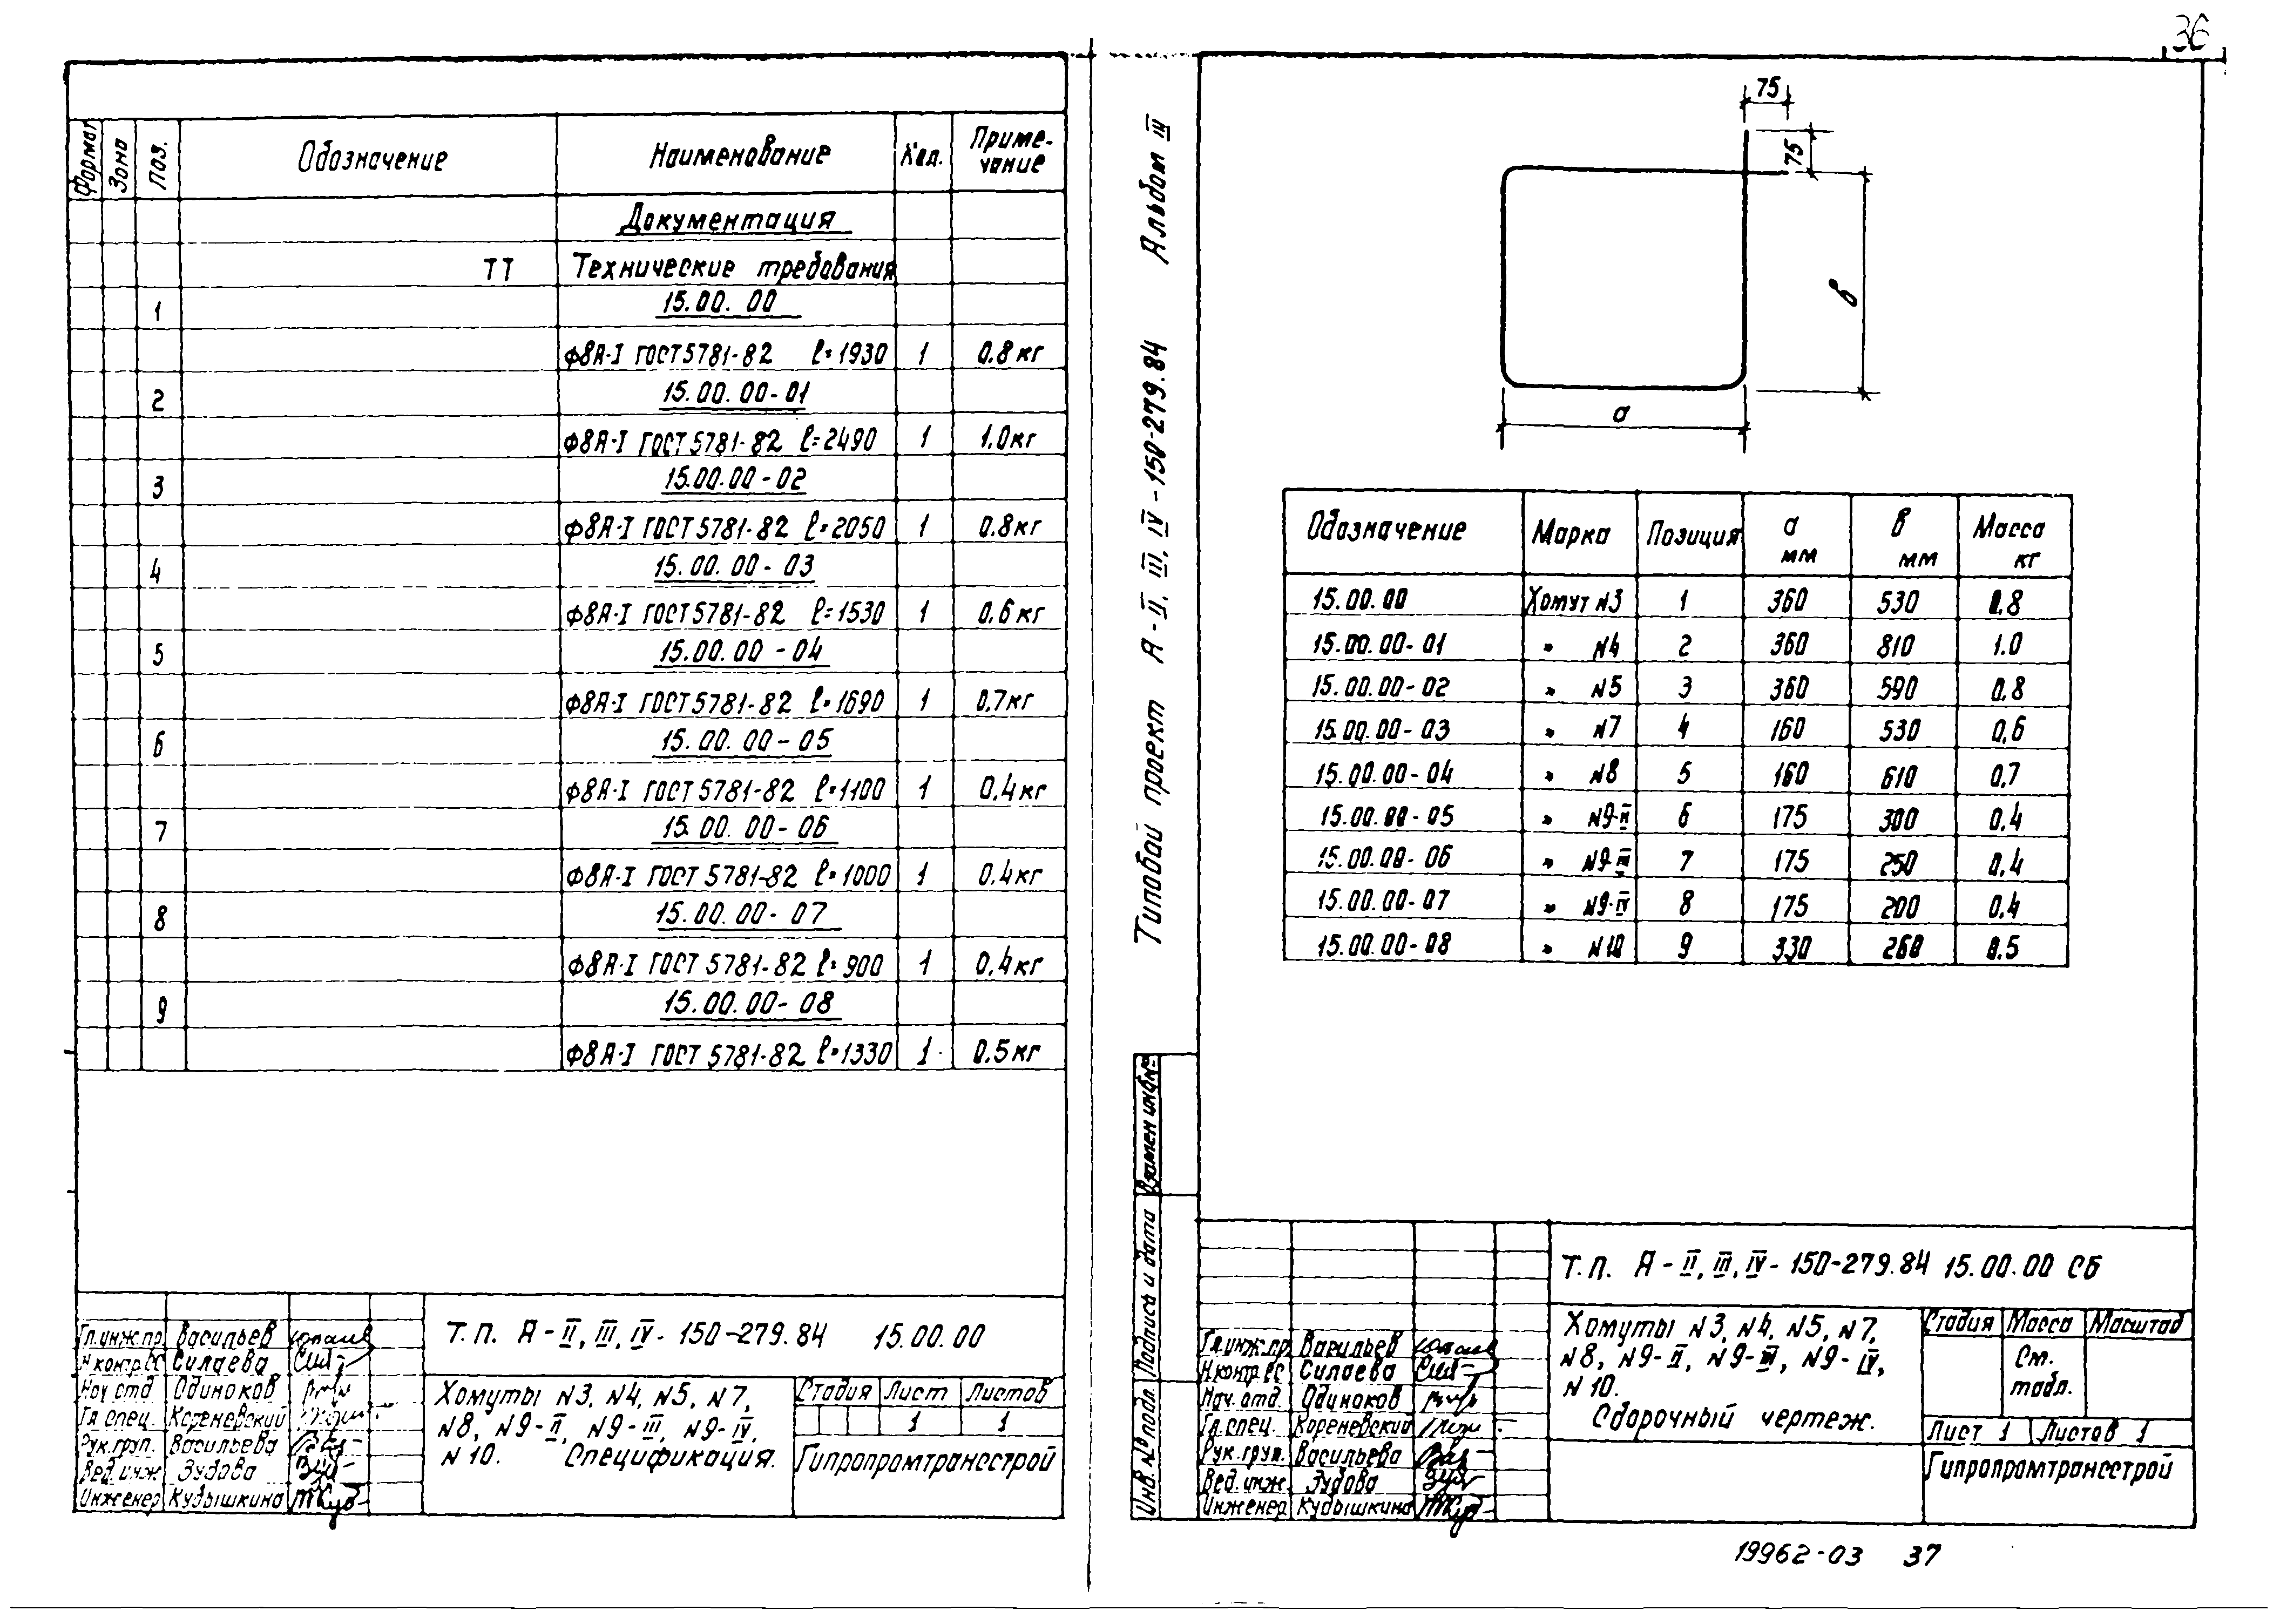 36
Формат Зона Поз. Обозначение Наименование Кол. Приме-
чание
Документация
ТТ Технические требования
1 15.00.00
Ф8А-I ГОСТ 5781-82 ℓ=1930 1 0.8 кг
2 15.00.00-01
Ф8А-I ГОСТ 5781-82 ℓ=2490 1 1.0 кг
3 15.00.00-02
Ф8А-I ГОСТ 5781-82 ℓ=2050 1 0.8 кг
4 15.00.00-03
Ф8А-I ГОСТ 5781-82 ℓ=1530 1 0.6 кг
5 15.00.00-04
Ф8А-I ГОСТ 5781-82 ℓ=1690 1 0.7 кг
6 15.00.00-05
Ф8А-I ГОСТ 5781-82 ℓ=1100 1 0.4 кг
7 15.00.00-06
Ф8А-I ГОСТ 5781-82 ℓ=1000 1 0.4 кг
8 15.00.00-07
Ф8А-I ГОСТ 5781-82 ℓ=900 1 0.4 кг
9 15.00.00-08
Ф8А-I ГОСТ 5781-82 ℓ=1330 1 0.5 кг
Т.П. А-II, III, IV-150-279.84 15.00.00
Гл.инж.пр. Васильев
Н.контр.ВС Силаева
Нач отд Одиноков
Гл.спец. Кореневский
Рук.груп. Васильева
Вед.инж Зудова
Инженер Кудышкина
Хомуты N3, N4, N5, N7,
N8, N9-II, N9-III, N9-IV,
N10. Спецификация.
Стадия Лист Листов
1 1
Гипропромтрансстрой
Типовой проект А-II, III, IV-150-279.84 Альбом III
75
75
в
а
Обозначение Марка Позиция а мм в мм Масса кг
15.00.00 Хомут N3 1 360 530 0.8
15.00.00-01 " N4 2 360 810 1.0
15.00.00-02 " N5 3 360 590 0.8
15.00.00-03 " N7 4 160 530 0.6
15.00.00-04 " N8 5 160 610 0.7
15.00.00-05 " N9-II 6 175 300 0.4
15.00.00-06 " N9-III 7 175 250 0.4
15.00.00-07 " N9-IV 8 175 200 0.4
15.00.00-08 " N10 9 330 260 0.5
Взамен инв.№
Подпись и дата
Инв. № подл.
Т.П. А-II, III, IV-150-279.84 15.00.00 СБ
Гл.инж.пр. Васильев
Н.контр.ВС Силаева
Нач.отд. Одиноков
Гл.спец. Кореневский
Рук.груп. Васильева
Вед.инж. Зудова
Инженер Кудышкина
Хомуты N3, N4, N5, N7,
N8, N9-II, N9-III, N9-IV,
N10.
Сборочный чертеж.
Стадия Масса Масштаб
См.
табл.
Лист 1 Листов 1
Гипропромтрансстрой
19962-03 37